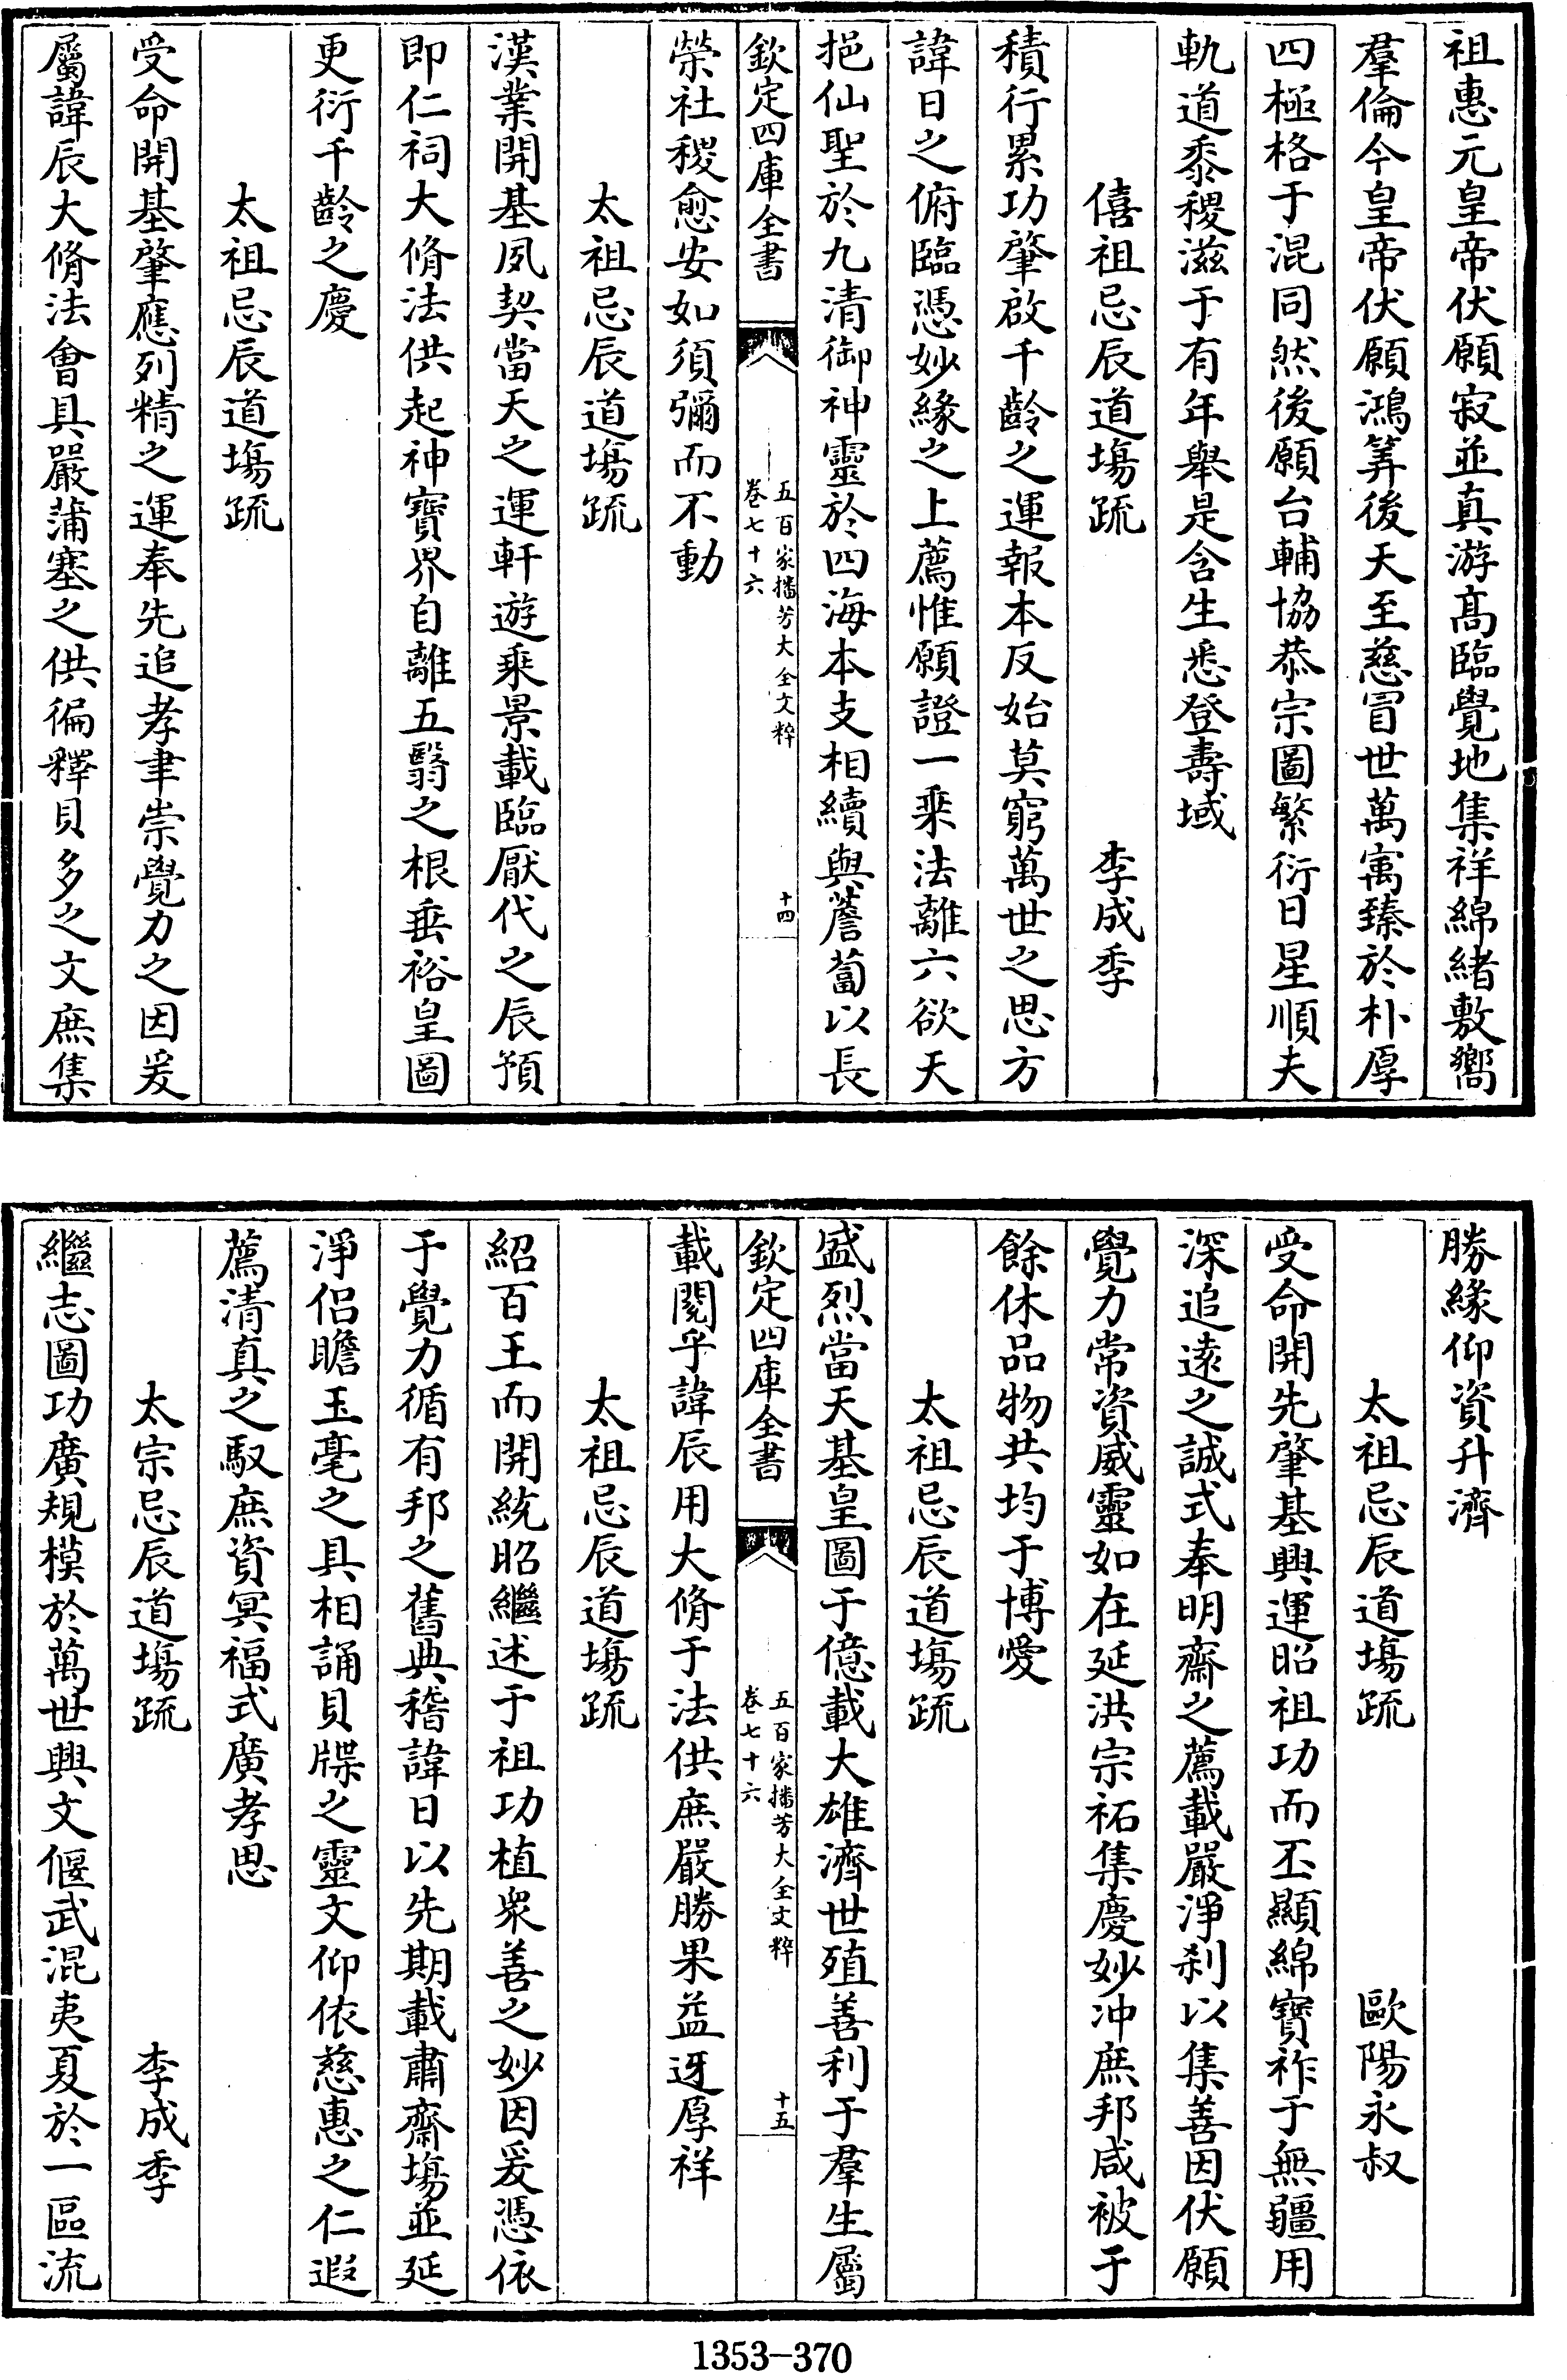 祖惠元皇帝伏願寂並真游髙臨覺地集祥綿緒敷嚮
羣倫今皇帝伏願鴻筭後天至慈冒世萬㝢臻於朴厚
四極格于混同然後願台輔協恭宗圖繁衍日星順夫
軌道黍稷滋于有年舉是含生悉登壽域
僖祖忌辰道塲疏 李成季
積行累功肇啟千齡之運報本反始莫窮萬世之思方
諱日之俯臨憑妙縁之上薦惟願證一乗法離六欲天
挹仙聖於九清御神靈於四海本支相續與薝蔔以長
欽定四庫全書
五百家播芳大全文粹
卷七十六
十四
榮社稷愈安如須彌而不動
太祖忌辰道塲疏
漢業開基夙契當天之運軒遊乗景載臨厭代之辰預
即仁祠大脩法供起神寶界自離五翳之根垂裕皇圖
更衍千齡之慶
太祖忌辰道塲疏
受命開基肇應列精之運奉先追孝聿崇覺力之因爰
屬諱辰大脩法會具嚴蒲塞之供徧釋貝多之文庶集
勝縁仰資升濟
太祖忌辰道塲疏 歐陽永叔
受命開先肇基興運昭祖功而丕顯綿寶祚于無疆用
深追逺之誠式奉明齋之薦載嚴淨刹以集善因伏願
覺力常資威靈如在延洪宗祏集慶妙冲庶邦咸被于
餘休品物共均于博愛
太祖忌辰道塲疏
盛烈當天基皇圖于億載大雄濟世殖善利于羣生屬
欽定四庫全書
五百家播芳大全文粹
卷七十六
十五
載閱乎諱辰用大脩于法供庶嚴勝果益迓厚祥
太祖忌辰道塲疏
紹百王而開統昭繼述于祖功植衆善之妙因爰憑依
于覺力循有邦之舊典稽諱日以先期載肅齋塲並延
淨侣瞻玉毫之具相誦貝牒之靈文仰依慈惠之仁遐
薦清真之馭庶資冥福式廣孝思
太宗忌辰道塲疏 李成季
繼志圖功廣規模於萬世興文偃武混夷夏於一區流
1353-370